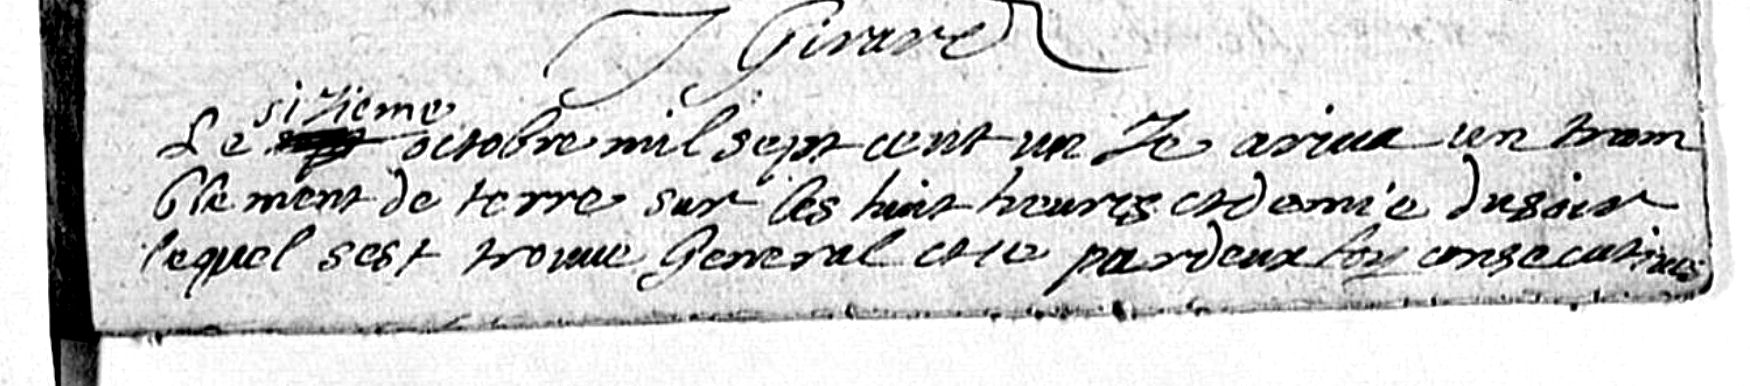 J Girard
sizieme
Le octobre mil sept cent un Je ariua un tram
blement de terre sur les huit heures et demie du soir
lequel sest trouue General et ce par deux foy consecutiues